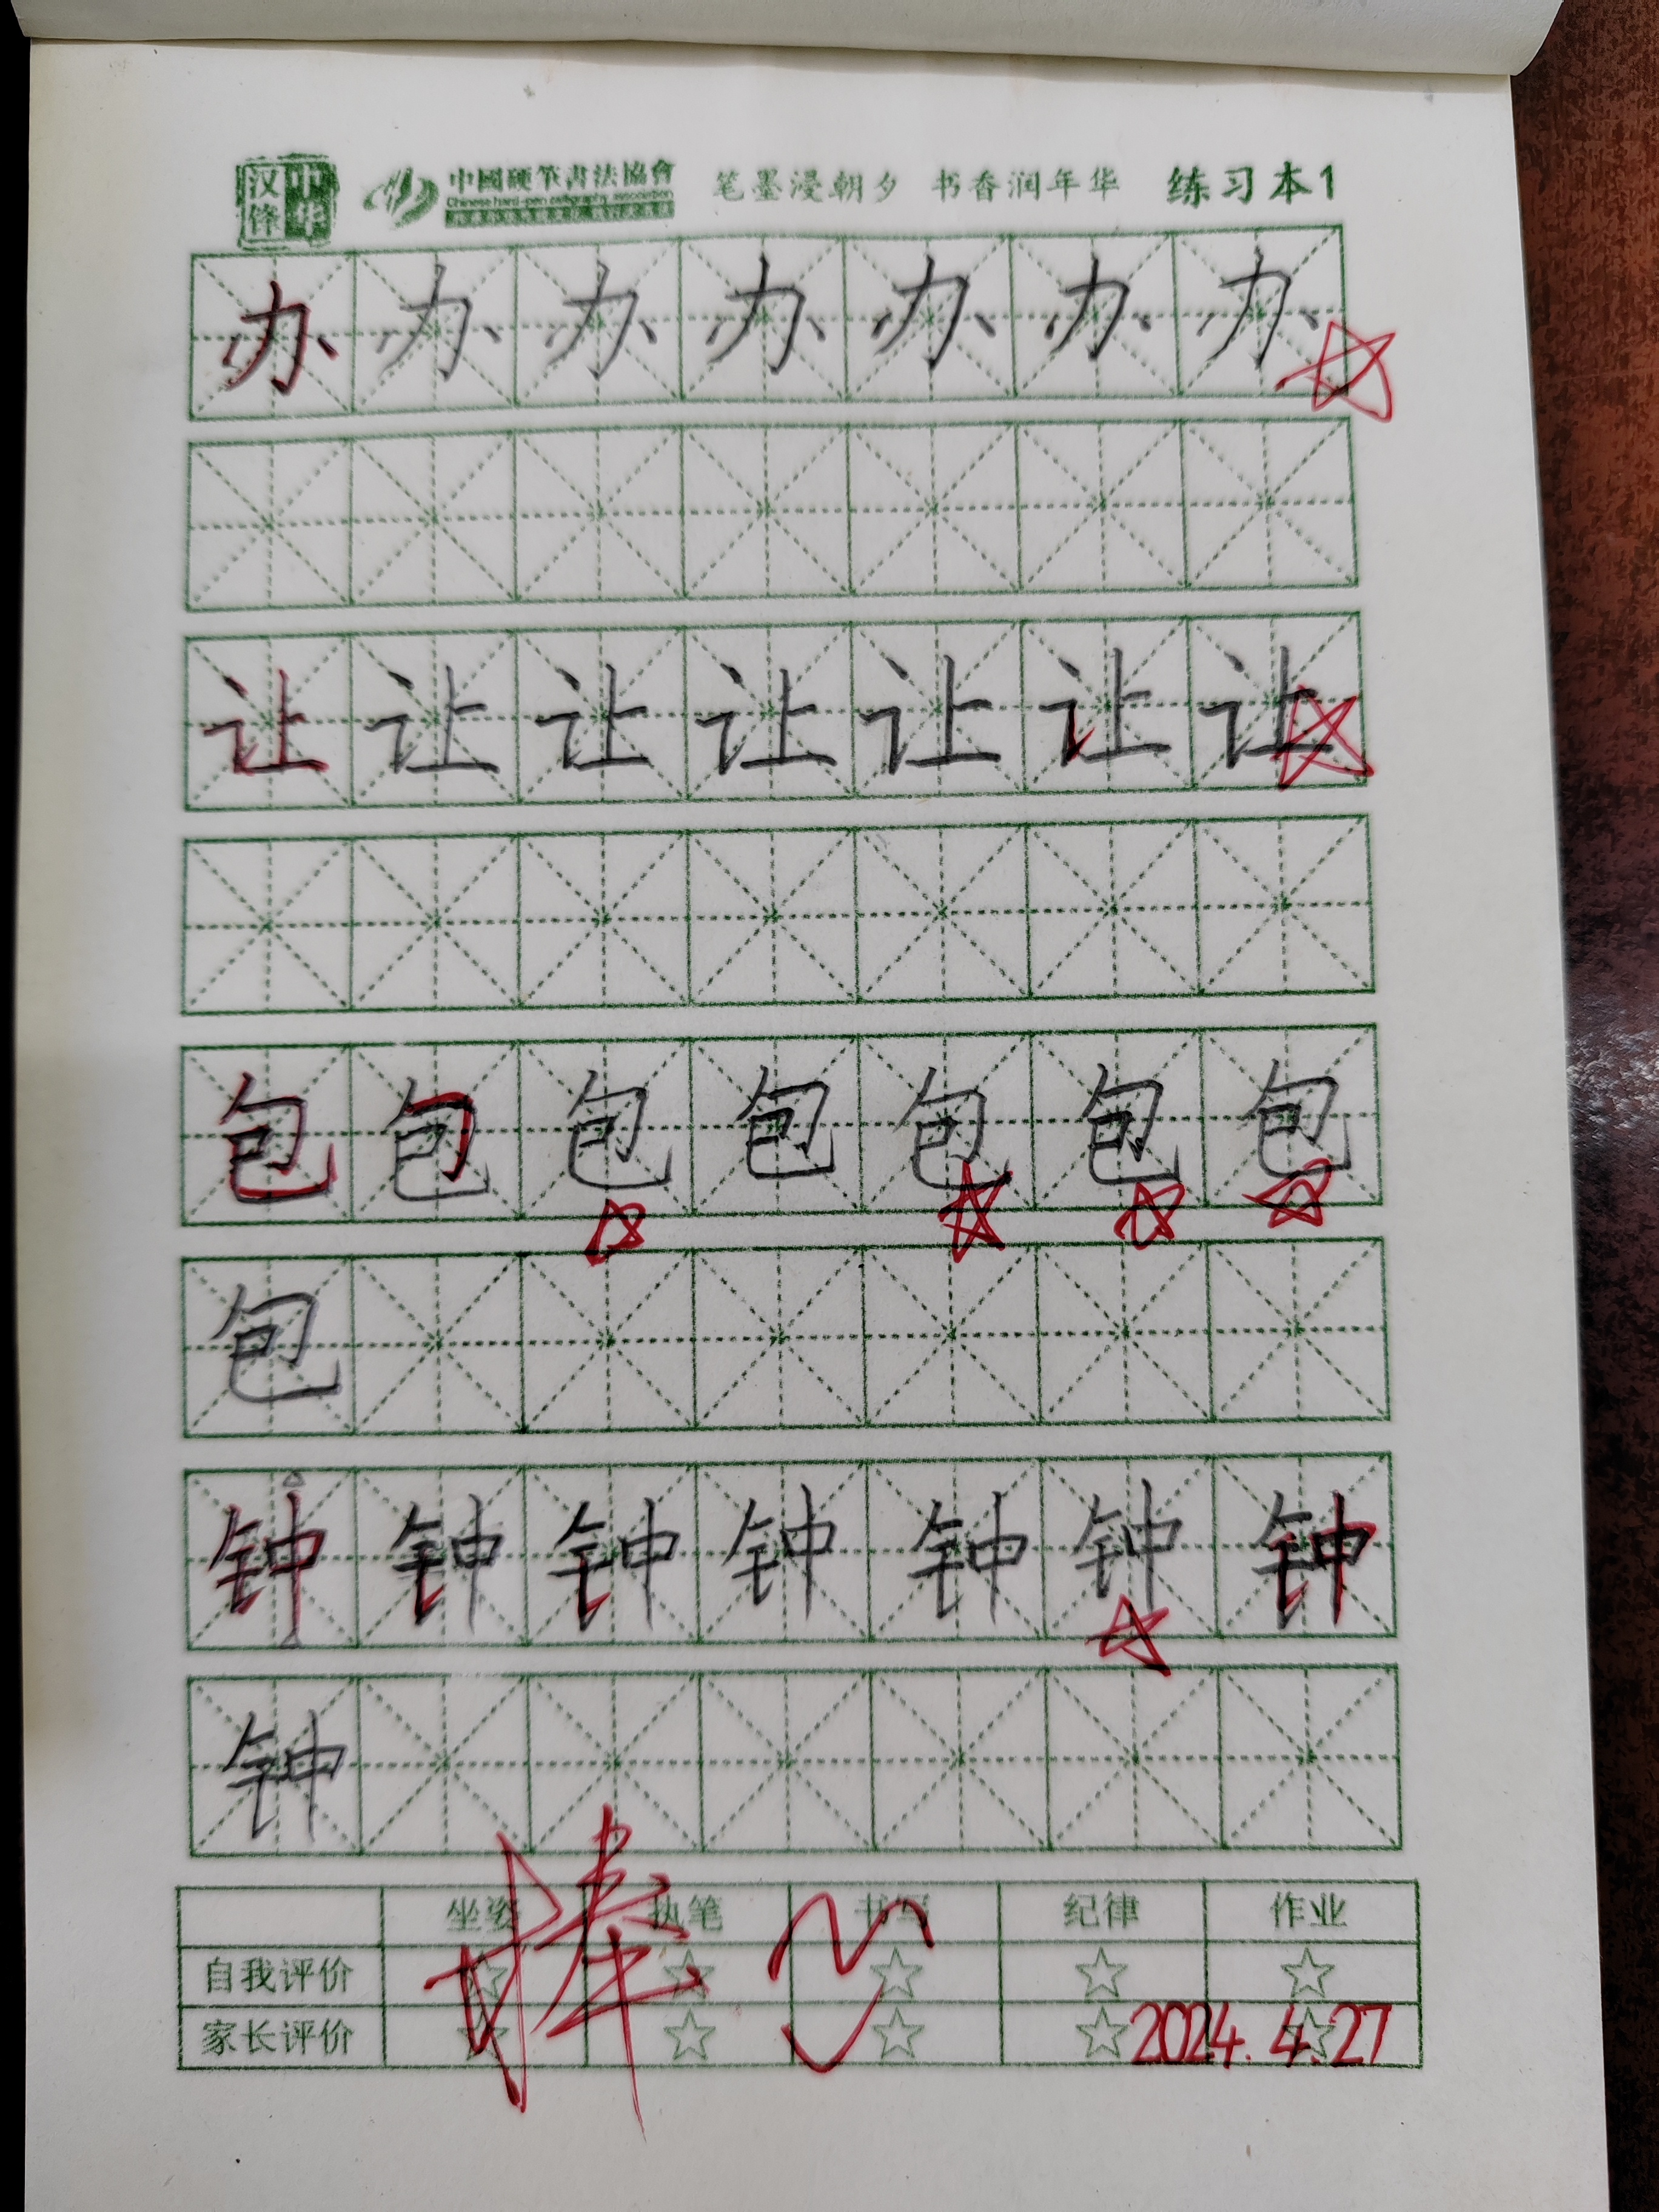 中华汉锋 中國硬筆書法協會 笔墨浸朝夕 书香润年华 练习本1
Chinese hard-pen calligraphy association
办 办 办 办 办 办 办
让 让 让 让 让 让 让
包 包 包 包 包 包 包
包
钟 钟 钟 钟 钟 钟 钟
钟
棒
坐姿 执笔 书写 纪律 作业
自我评价
家长评价
2024.4.27